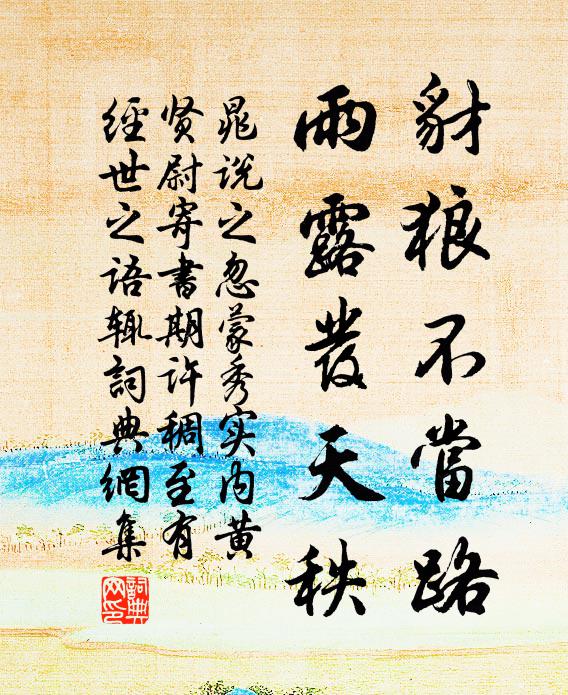 豺狼不當路
雨露發天秩
晁说之忽蒙秀实内黄
贤尉寄書期许稠至有
經世之语辄詞典網集
詞典网印